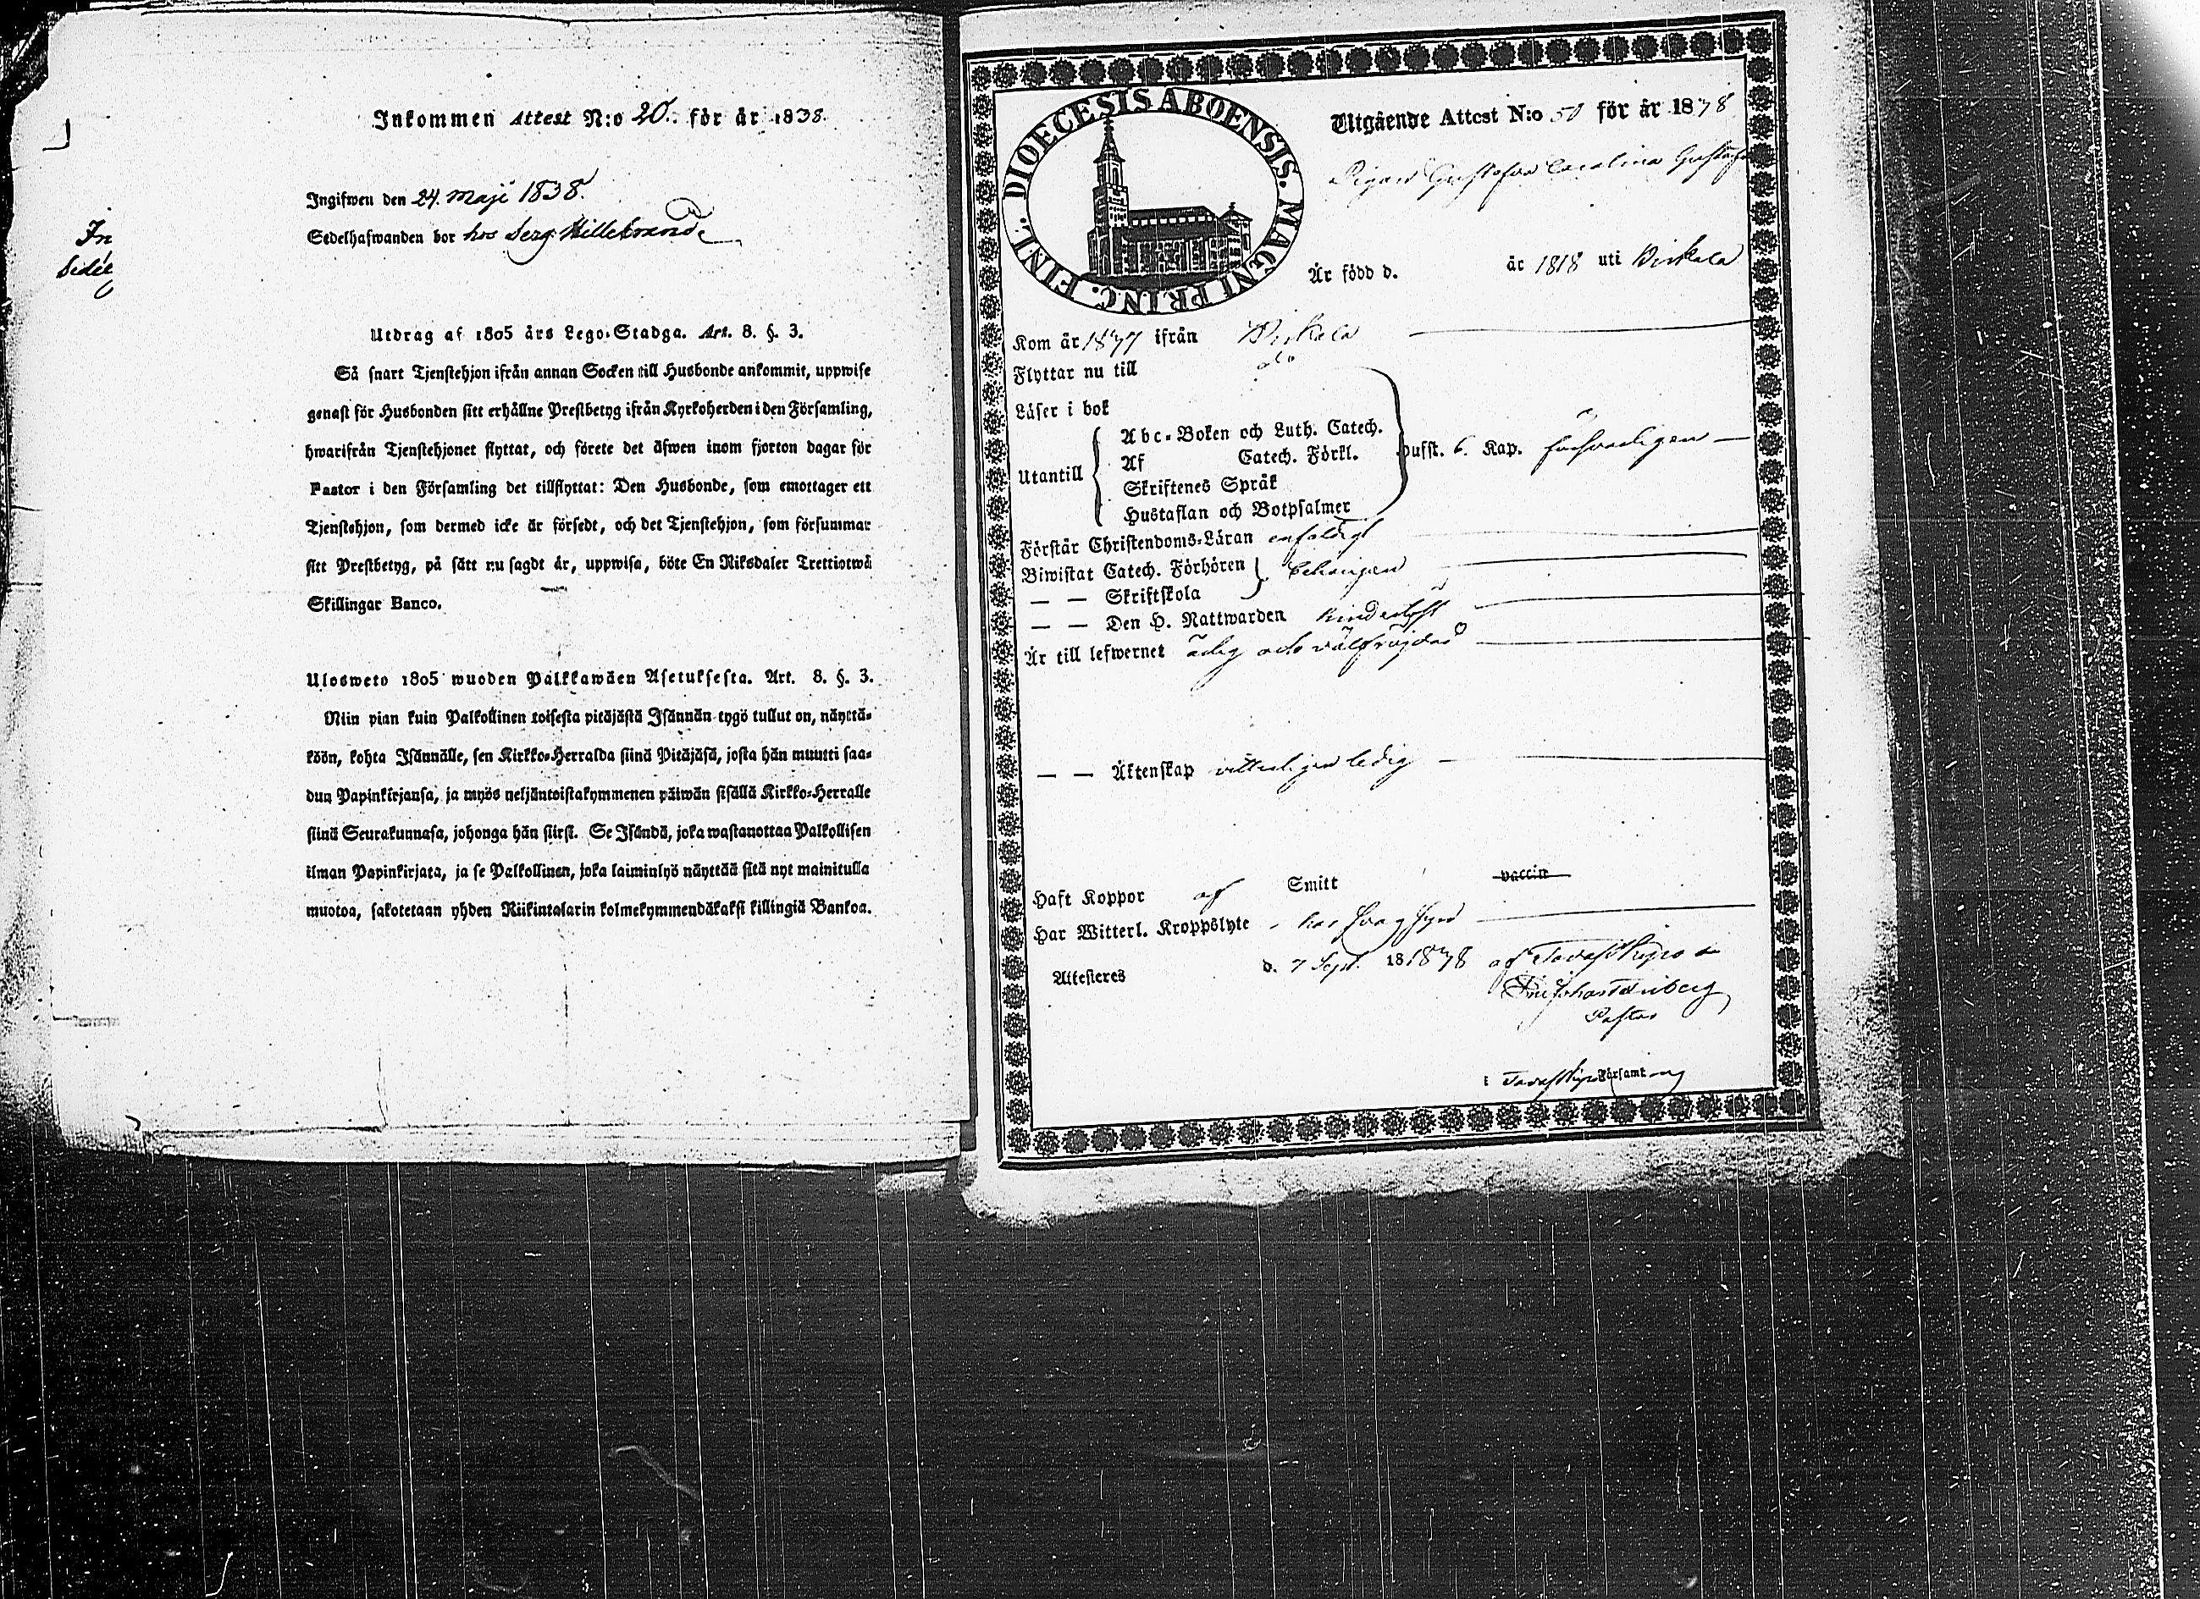 Inkommen Attest N:o 20. för år 1838.
Ingifwen den 24. Maji 1838.
Sedelhafwanden bor hos Serg. Hillebrand
In
Sedel
Utdrag af 1805 års Lego-Stadga. Art. 8. §. 3.
Så snart Tjenstehjon ifrån annan Socken till Husbonde ankommit, uppwise
genast för Husbonden sitt erhållne Prestbetyg ifrån Kyrkoherden i den Församling,
hwarifrån Tjenstehjonet flyttat, och förete det äfwen inom fjorton dagar för
Pastor i den Församling det tillflyttat: Den Husbonde, som emottager ett
Tjenstehjon, som dermed icke är försedt, och det Tjenstehjon, som försummar
sitt Prestbetyg, på sätt nu sagdt är, uppwisa, böte En Riksdaler Trettiotwå
Skillingar Banco.
Ulosweto 1805 wuoden Palkkawäen Asetuksesta. Art. 8. §. 3.
Niin pian kuin Palkollinen toisesta pitäjästä Isännän tygö tullut on, näyttä-
köön, kohta Isännälle, sen Kirkko-Herralda siinä Pitäjäsä, josta hän muutti saa-
dun Papinkirjansa, ja myös neljäntoistakymmenen päiwän sisällä Kirkko-Herralle
siinä Seurakunnasa, johonga hän siirsi. Se Isändä, joka wastanottaa Palkollisen
ilman Papinkirjata, ja se Palkollinen, joka laiminlyö näyttää sitä nyt mainitulla
muotoa, sakotetaan yhden Riikintalarin kolmekymmendäkaksi killingiä Bankoa.
DIOECESIS ABOENSIS. MAGNI PRINC. FINL.
Utgående Attest N:o 50 för år 1838
Pigan Gustafva Carolina Gustafsd
Är född d. år 1818 uti Birkala
Kom år 1837 ifrån Birkala
Flyttar nu till do
Läser i bok
Utantill
Abc-Boken och Luth. Catech.
Af Catech. Förkl.
Skriftenes Språk
Hustaflan och Botpsalmer
hufst. 6. Kap. försvarligen
Förstår Christendoms-Läran enfaldigt
Biwistat Catech. Förhören behörigen
— — Skriftskola
— — Den H. Nattwarden
Är till lefwernet ärlig och välfrejdad
— — Äktenskap vitterligen ledig
Haft Koppor af Smitt vaccin
Har Witterl. Kroppslyte - har svag syn
Attesteres d. 7 Sept. 18 1838 af Tavastkyro
Pastor
i Tavastkyro Församling